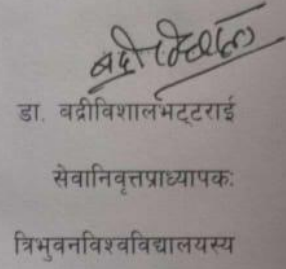 बद्रीविशाल
डा. वद्रीविशालभट्टराई
सेवानिवृत्तप्राध्यापकः
त्रिभुवनविश्वविद्यालयस्य